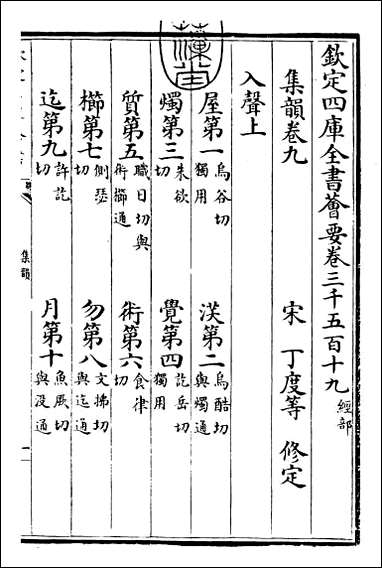 欽定四庫全書薈要卷三千五百十九 經部
集韻卷九
宋 丁度等 修定
入聲上
屋第一 烏谷切獨用
沃第二 烏酷切與燭通
燭第三 朱欲切
覺第四 訖岳切獨用
質第五 職日切與術櫛通
術第六 食律切
櫛第七 側瑟切
勿第八 文拂切與迄通
迄第九 許訖切
月第十 魚厥切與沒通
集韻
一